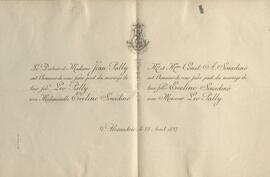 Le Docteur et Madame Jean Pully
ont l'honneur de vous faire part du mariage de
leur fils Leo Pully
avec Mademoiselle Eveline Sinadinó
Mr et Mme Const. A. Sinadinó
ont l'honneur de vous faire part du mariage de
leur fille Eveline Sinadinó
avec Monsieur Leo Pully
Alexandrie, le 28 Avril 1897